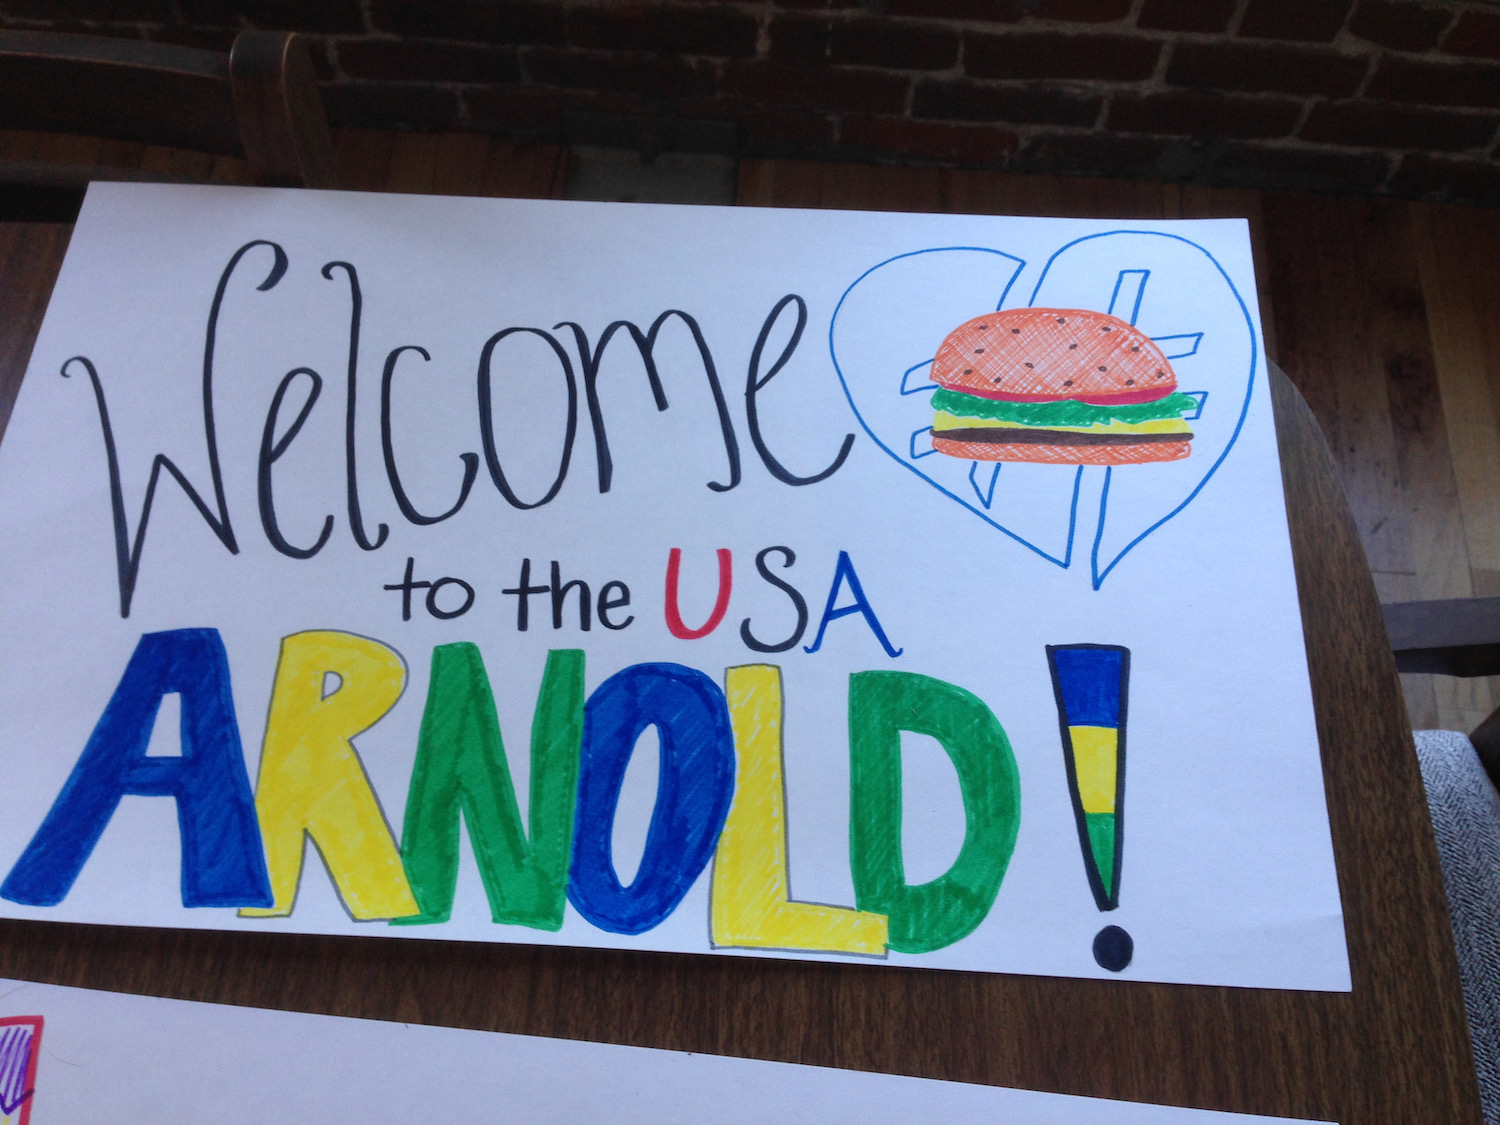 Welcome
to the USA
ARNOLD!